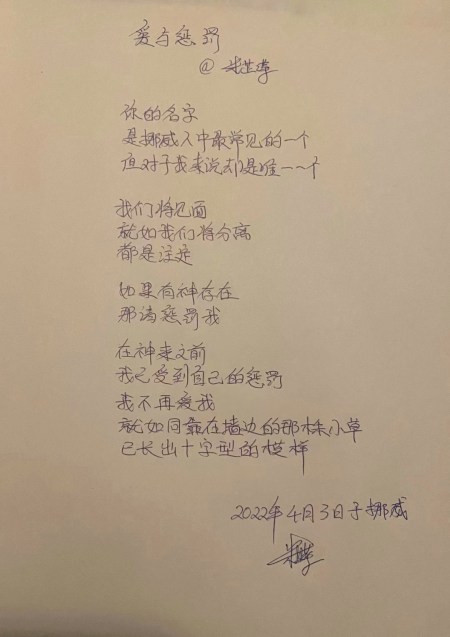 爱与惩罚
@米芷萍
你的名字
是挪威人中最常见的一个
但对于我来说却是唯一一个
我们将见面
就如我们将分离
都是注定
如果有神存在
那请惩罚我
在神来之前
我已受到自己的惩罚
我不再爱我
就如同靠在墙边的那株小草
已长出十字型的模样
2022年4月3日于挪威